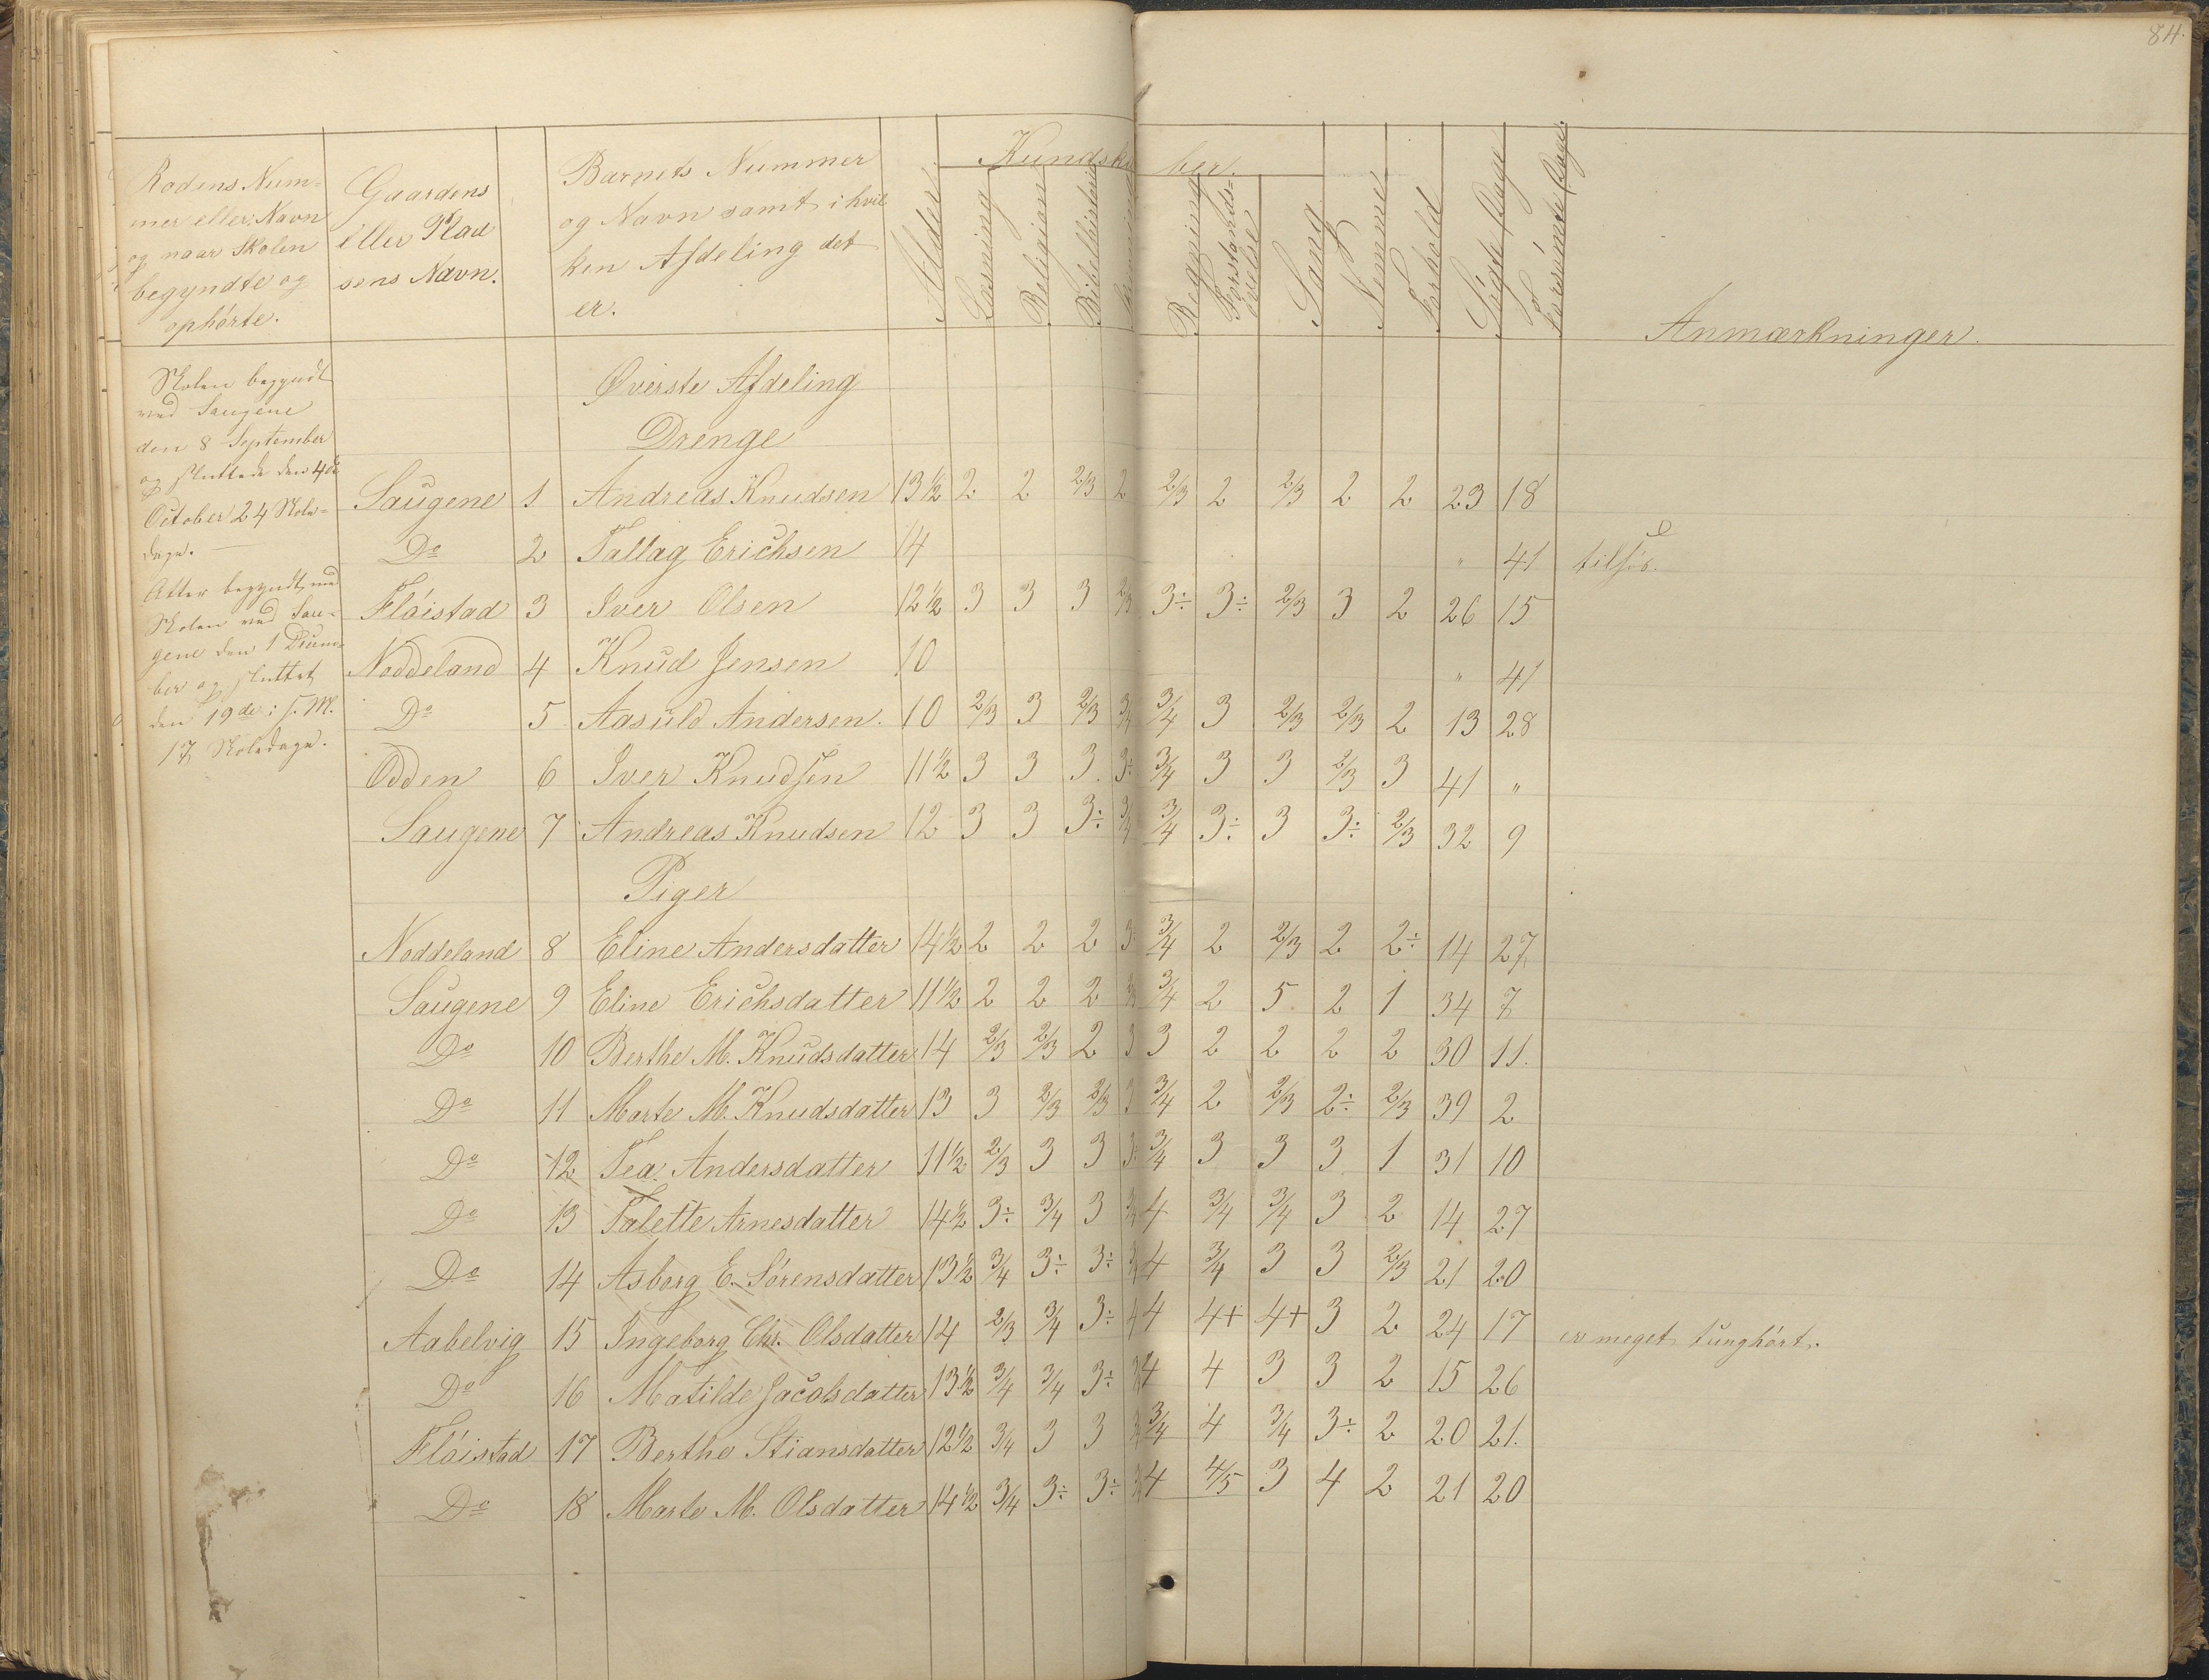 84.
Rodens Num-
mer eller Navn
og naar Skolen
begyndte og
ophörte.
Gaardens
eller Plad
sens Navn.
Barnets Nummer
og Navn samt i hvil
ken Afdeling det
er.
Alder
Kundska ber.
Læsning
Religion
Bibelhistorie
Regning
Forstands-
övelse
Sang
Nemme
Forhold
Sögte Dage
Forsömte Dage.
Anmærkninger.
Skolen begyndt
ved Saugene
den 8 September
og sluttede den 4de
October 24 Skole-
dage.
Atter begyndt med
Skolen ved Sau-
gene den 1 Decem-
ber og sluttet
den 19de i s. M.
17 Skoledage.
Øverste Afdeling
Drenge
Saugene 1 Andreas Knudsen 13½ 2 2 2/3 2 2/3 2 2/3 2 2 23 18
Do 2 Tallag Erichsen 14 " 41 tilsös.
Flöistad 3 Iver Olsen 12½ 3 3 3 2/3 3÷ 3÷ 2/3 3 2 26 15
Noddeland 4 Knud Jensen 10 " 41
Do 5 Aasuld Andersen. 10 2/3 3 2/3 3/4 3/4 3 2/3 2/3 2 13 28
Odden 6 Iver Knudsen 11½ 3 3 3 3÷ 3/4 3 3 2/3 3 41 "
Saugene 7 Andreas Knudsen 12 3 3 3÷ 3/4 3/4 3÷ 3 3÷ 2/3 32 9
Piger
Noddeland 8 Eline Andersdatter 14½ 2 2 2 3 3/4 2 2/3 2 2÷ 14 27
Saugene 9 Eline Erichsdatter 11½ 2 2 2 3/4 2 5 2 1 34 7
Do 10 Berthe M. Knudsdatter 14 2/3 2/3 2 3 3 2 2 2 2 30 11.
Do 11 Marte M. Knudsdatter 13 3 2/3 2/3 3 3/4 2 2/3 2÷ 2/3 39 2
Do 12 Tea. Andersdatter 11½ 2/3 3 3 3÷ 3/4 3 3 3 1 31 10
Do 13 Talette Arnesdatter 14½ 3÷ 3/4 3 3/4 4 3/4 3/4 3 2 14 27
Do 14 Asborg E. Sörensdatter 13½ 3/4 3÷ 3÷ 3/4 4 3/4 3 3 2/3 21 20
Aabelvig 15 Ingeborg Chr. Olsdatter 14 2/3 3/4 3÷ 4 4 4+ 4+ 3 2 24 17 er meget tunghört.
Do 16 Matilde Jacobsdatter 13½ 3/4 3/4 3÷ 3/4 4 4 3 3 2 15 26
Flöistad 17 Berthe Stiansdatter 12½ 3/4 3 3 3/4 3/4 4 3/4 3÷ 2 20 21.
Do 18 Marte M. Olsdatter 14½ 3/4 3÷ 3÷ 3/4 4 4/5 3 4 2 21 20